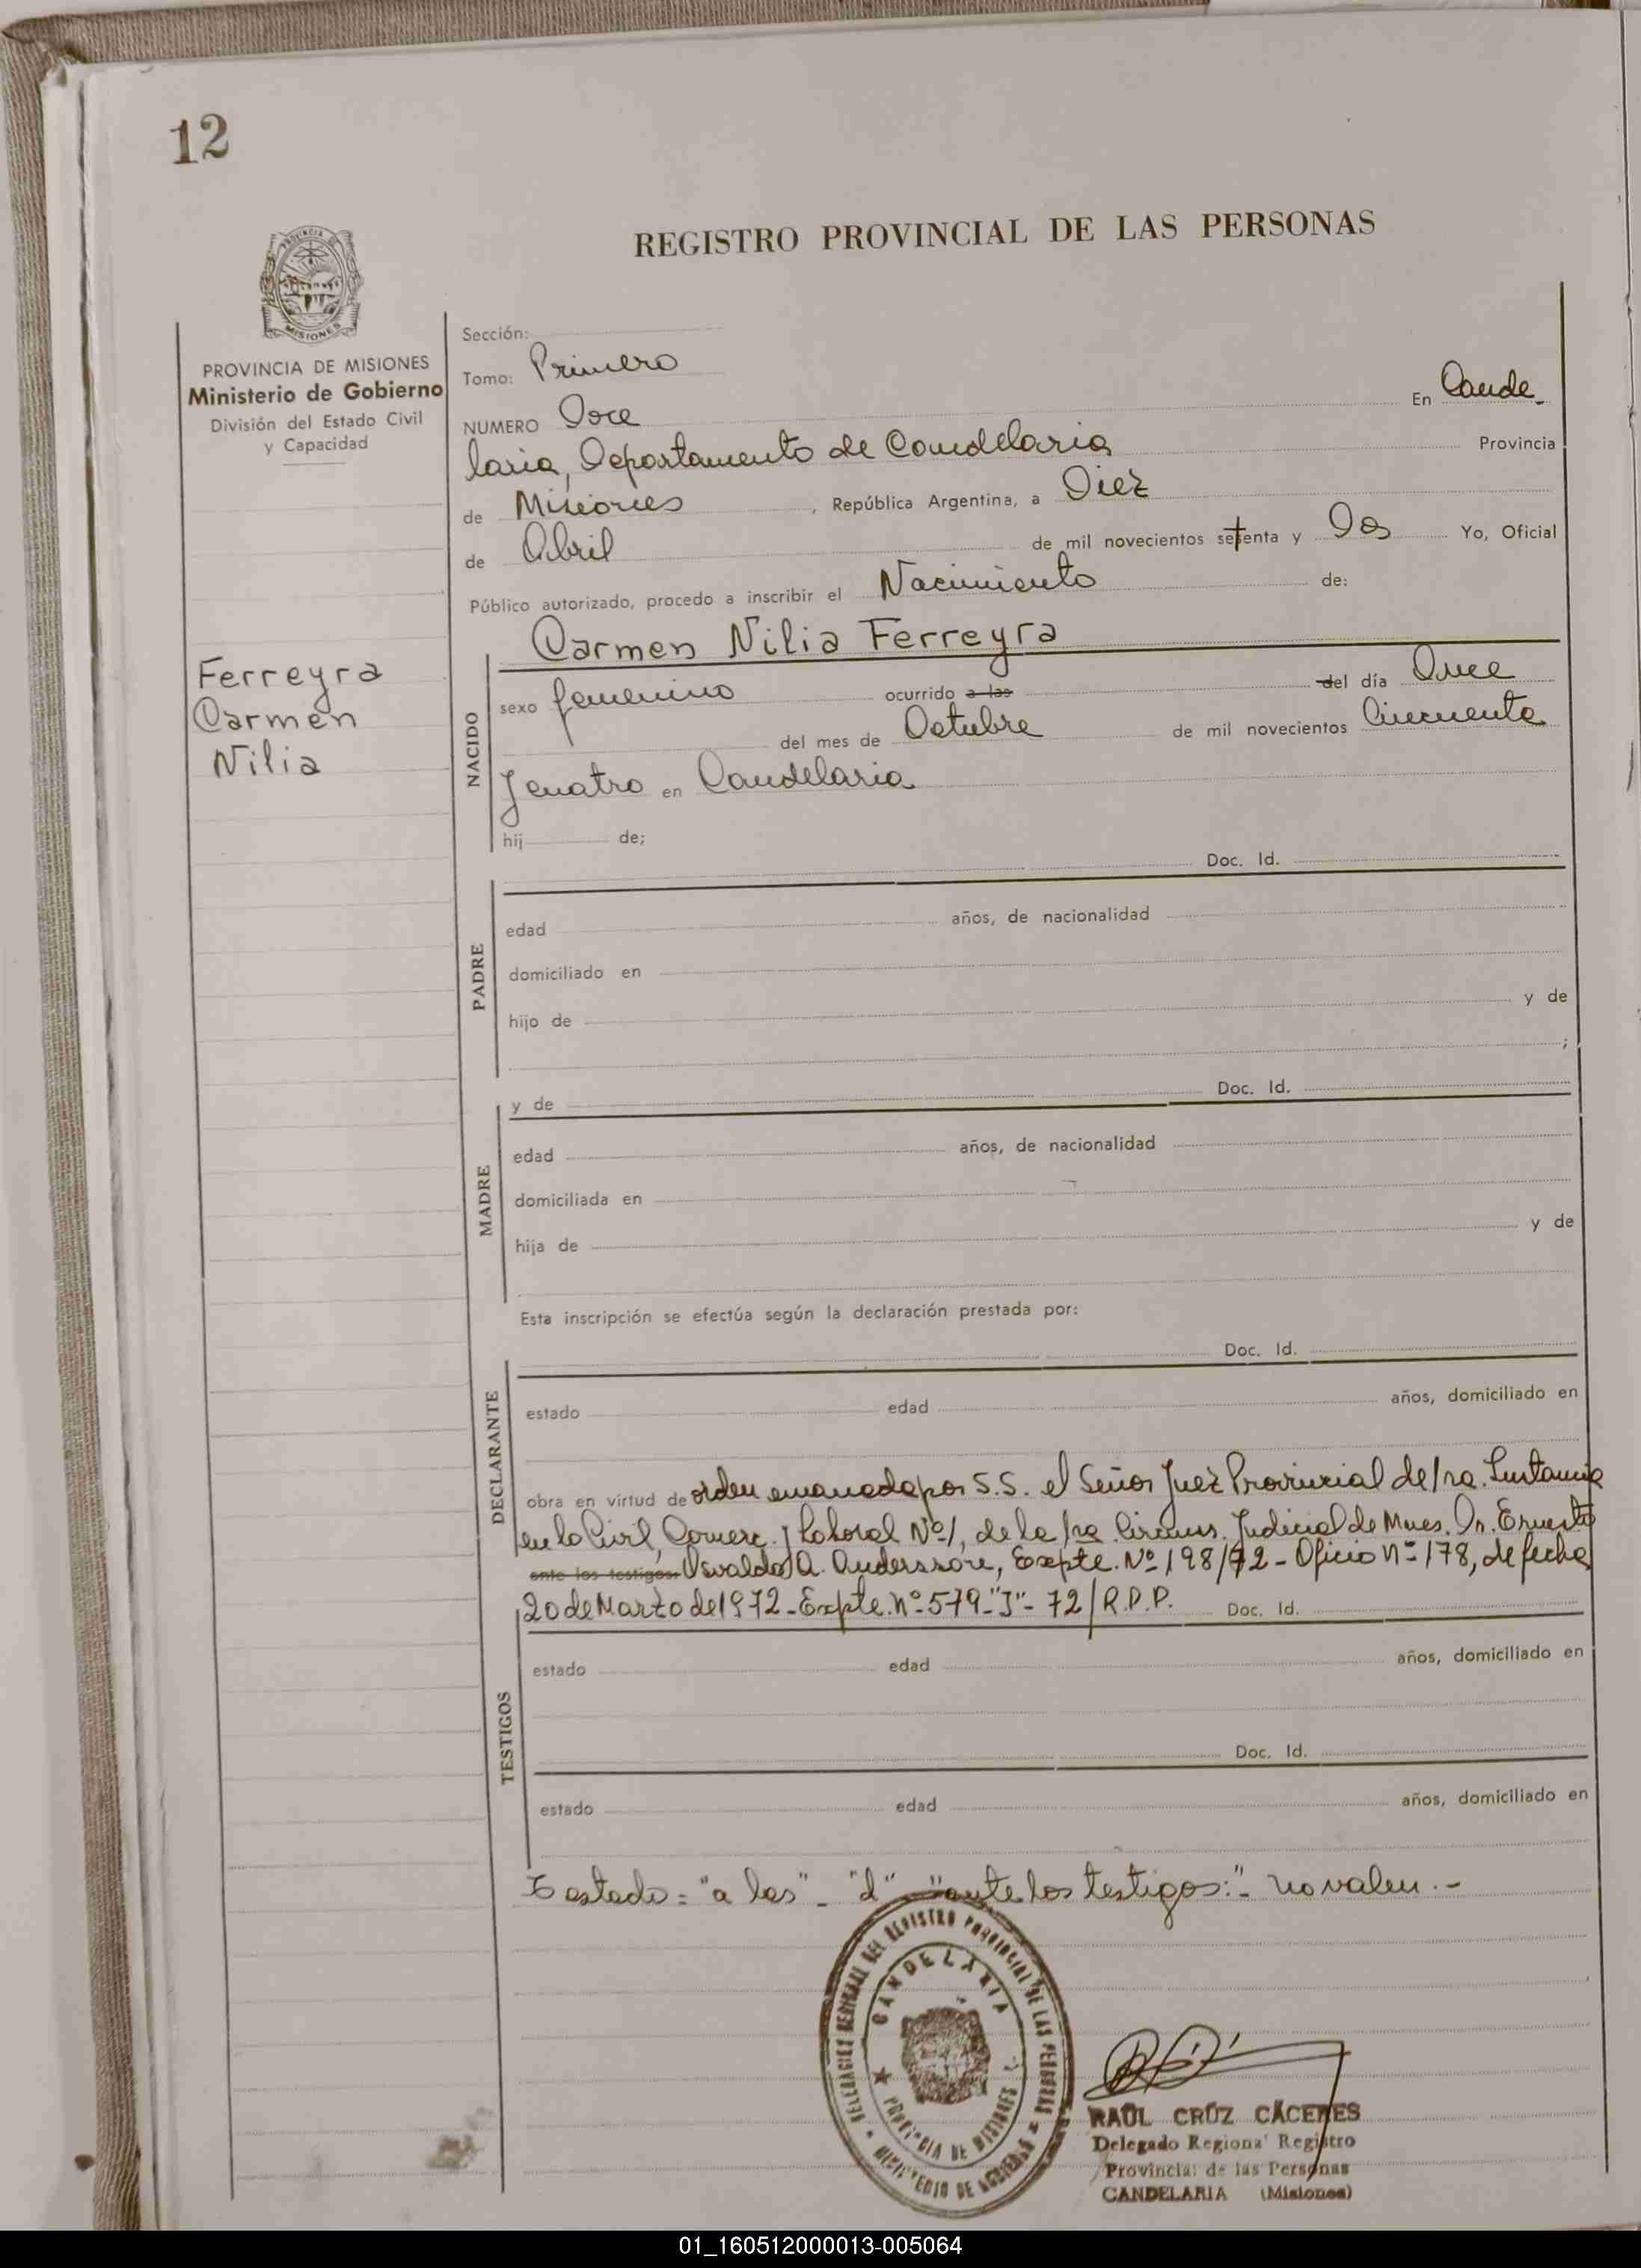 12
REGISTRO PROVINCIAL DE LAS PERSONAS
PROVINCIA DE MISIONES
Ministerio de Gobierno
División del Estado Civil
y Capacidad
Ferreyra
Carmen
Nilia
Sección:
Tomo: Primero
NUMERO Doce En Cande-
laria, Departamento de Candelaria Provincia
de Misiones, República Argentina, a Diez
de Abril de mil novecientos setenta y Dos Yo, Oficial
Público autorizado, procedo a inscribir el Nacimiento de:
Carmen Nilia Ferreyra
NACIDO
sexo femenino ocurrido a las del día Once
del mes de Octubre de mil novecientos Cincuenta
y cuatro en Candelaria
hij de;
Doc. Id.
PADRE
edad años, de nacionalidad
domiciliado en
hijo de y de
;
y de Doc. Id.
MADRE
edad años, de nacionalidad
domiciliada en
hija de y de
Esta inscripción se efectúa según la declaración prestada por:
Doc. Id.
DECLARANTE
estado edad años, domiciliado en
obra en virtud de orden emanada por S.S. el Señor Juez Provincial de 1ra. Instancia
en lo Civil, Comerc. y Laboral Nº 1, de la 1ra Circuns. Judicial de Mnes. Dr. Ernesto
ante los testigos: Osvaldo A. Anderssore, Expte. Nº 198/72 - Oficio Nº 178, de fecha
20 de Marzo de 1972 - Expte. Nº 579 - "J" - 72/R.P.P. Doc. Id.
TESTIGOS
estado edad años, domiciliado en
Doc. Id.
estado edad años, domiciliado en
Testado = "a las" - "d" - "ante los testigos:" - no valen. -
DELEGACION REGIONAL DEL REGISTRO PROVINCIAL DE LAS PERSONAS
MINISTERIO DE GOBIERNO
CANDELARIA
PROVINCIA DE MISIONES
RAÚL CRUZ CÁCERES
Delegado Regional Registro
Provincial de las Personas
CANDELARIA (Misiones)
01_160512000013-005064